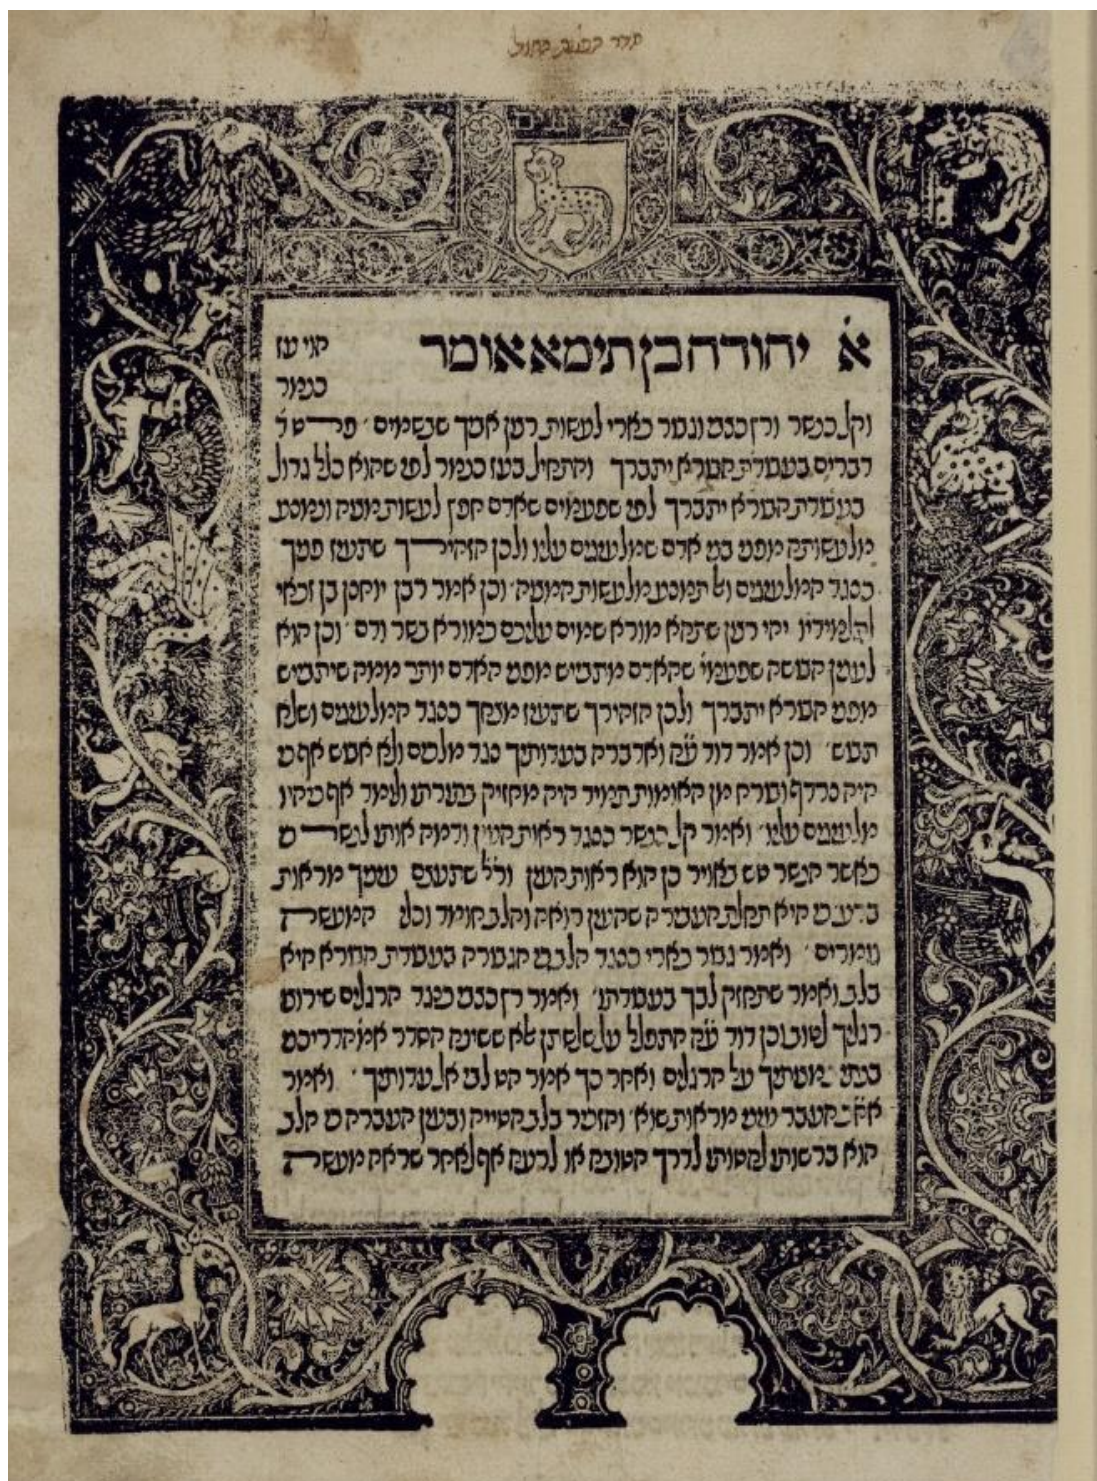 א׳ יהודה בן תימא אומר הוי עז
כנמר
וקל כנשר ורץ כצבי וגבור כארי לעשות רצון אביך שבשמים׳ פרט ד׳
דברים בעבודת הבורא יתברך והתחיל בעז כנמר לפי שהוא כלל גדול
בעבודת הבורא יתברך לפי שפעמים שאדם חפץ לעשות מצוה ונמנע
מלעשותה מפני בני אדם שמלעיגים עליו ולכן הזהירך שתעיז פניך
כנגד המלעיגים ואל תמנע מלעשות המצוה׳ וכן אמר רבן יוחנן בן זכאי
לתלמידיו יהי רצון שתהא מורא שמים עליכם כמורא בשר ודם׳ וכן הוא
לענין הבושה שפעמי׳ שהאדם מתבייש מפני האדם יותר ממה שיתבייש
מפני הבורא יתברך ולכן הזהירך שתעיז מצחך כנגד המלעיגים ושלא
תבוש׳ וכן אמר דוד ע״ה ואדברה בעדותיך נגד מלכים ולא אבוש אף כי
היה נרדף ובורח מן האומות תמיד היה מחזיק בתורתו ולומד אף כי היו
מלעיגים עליו׳ ואמר קל כנשר כנגד ראות העין ודמה אותו לנשר כי
כאשר הנשר שט באויר כן הוא ראות העין ור״ל שתעצים עיניך מראות
ברע כי היא תחלת העבירה שהעין רואה והלב חומד וכלי המעשה
גומרים׳ ואמר גבור כארי כנגד הלב כי הגבורה בעבודת הבורא היא
בלב ואמר שתחזק לבך בעבודתו׳ ואמר רץ כצבי כנגד הרגלים שירוצו
רגליך לטוב וכן דוד ע״ה התפלל על שלשתן אלא ששינה הסדר אמ׳ הדריכני
בנתיב מצותיך על הרגלים ואחר כך אמר הט לבי אל עדותיך׳ ואמר
אח״כ העבר עיני מראות שוא׳ והזכיר בלב הטייה ובעין העברה כי הלב
הוא ברשותו להטותו לדרך הטובה או לרעה אף לאחר שראה מעשה